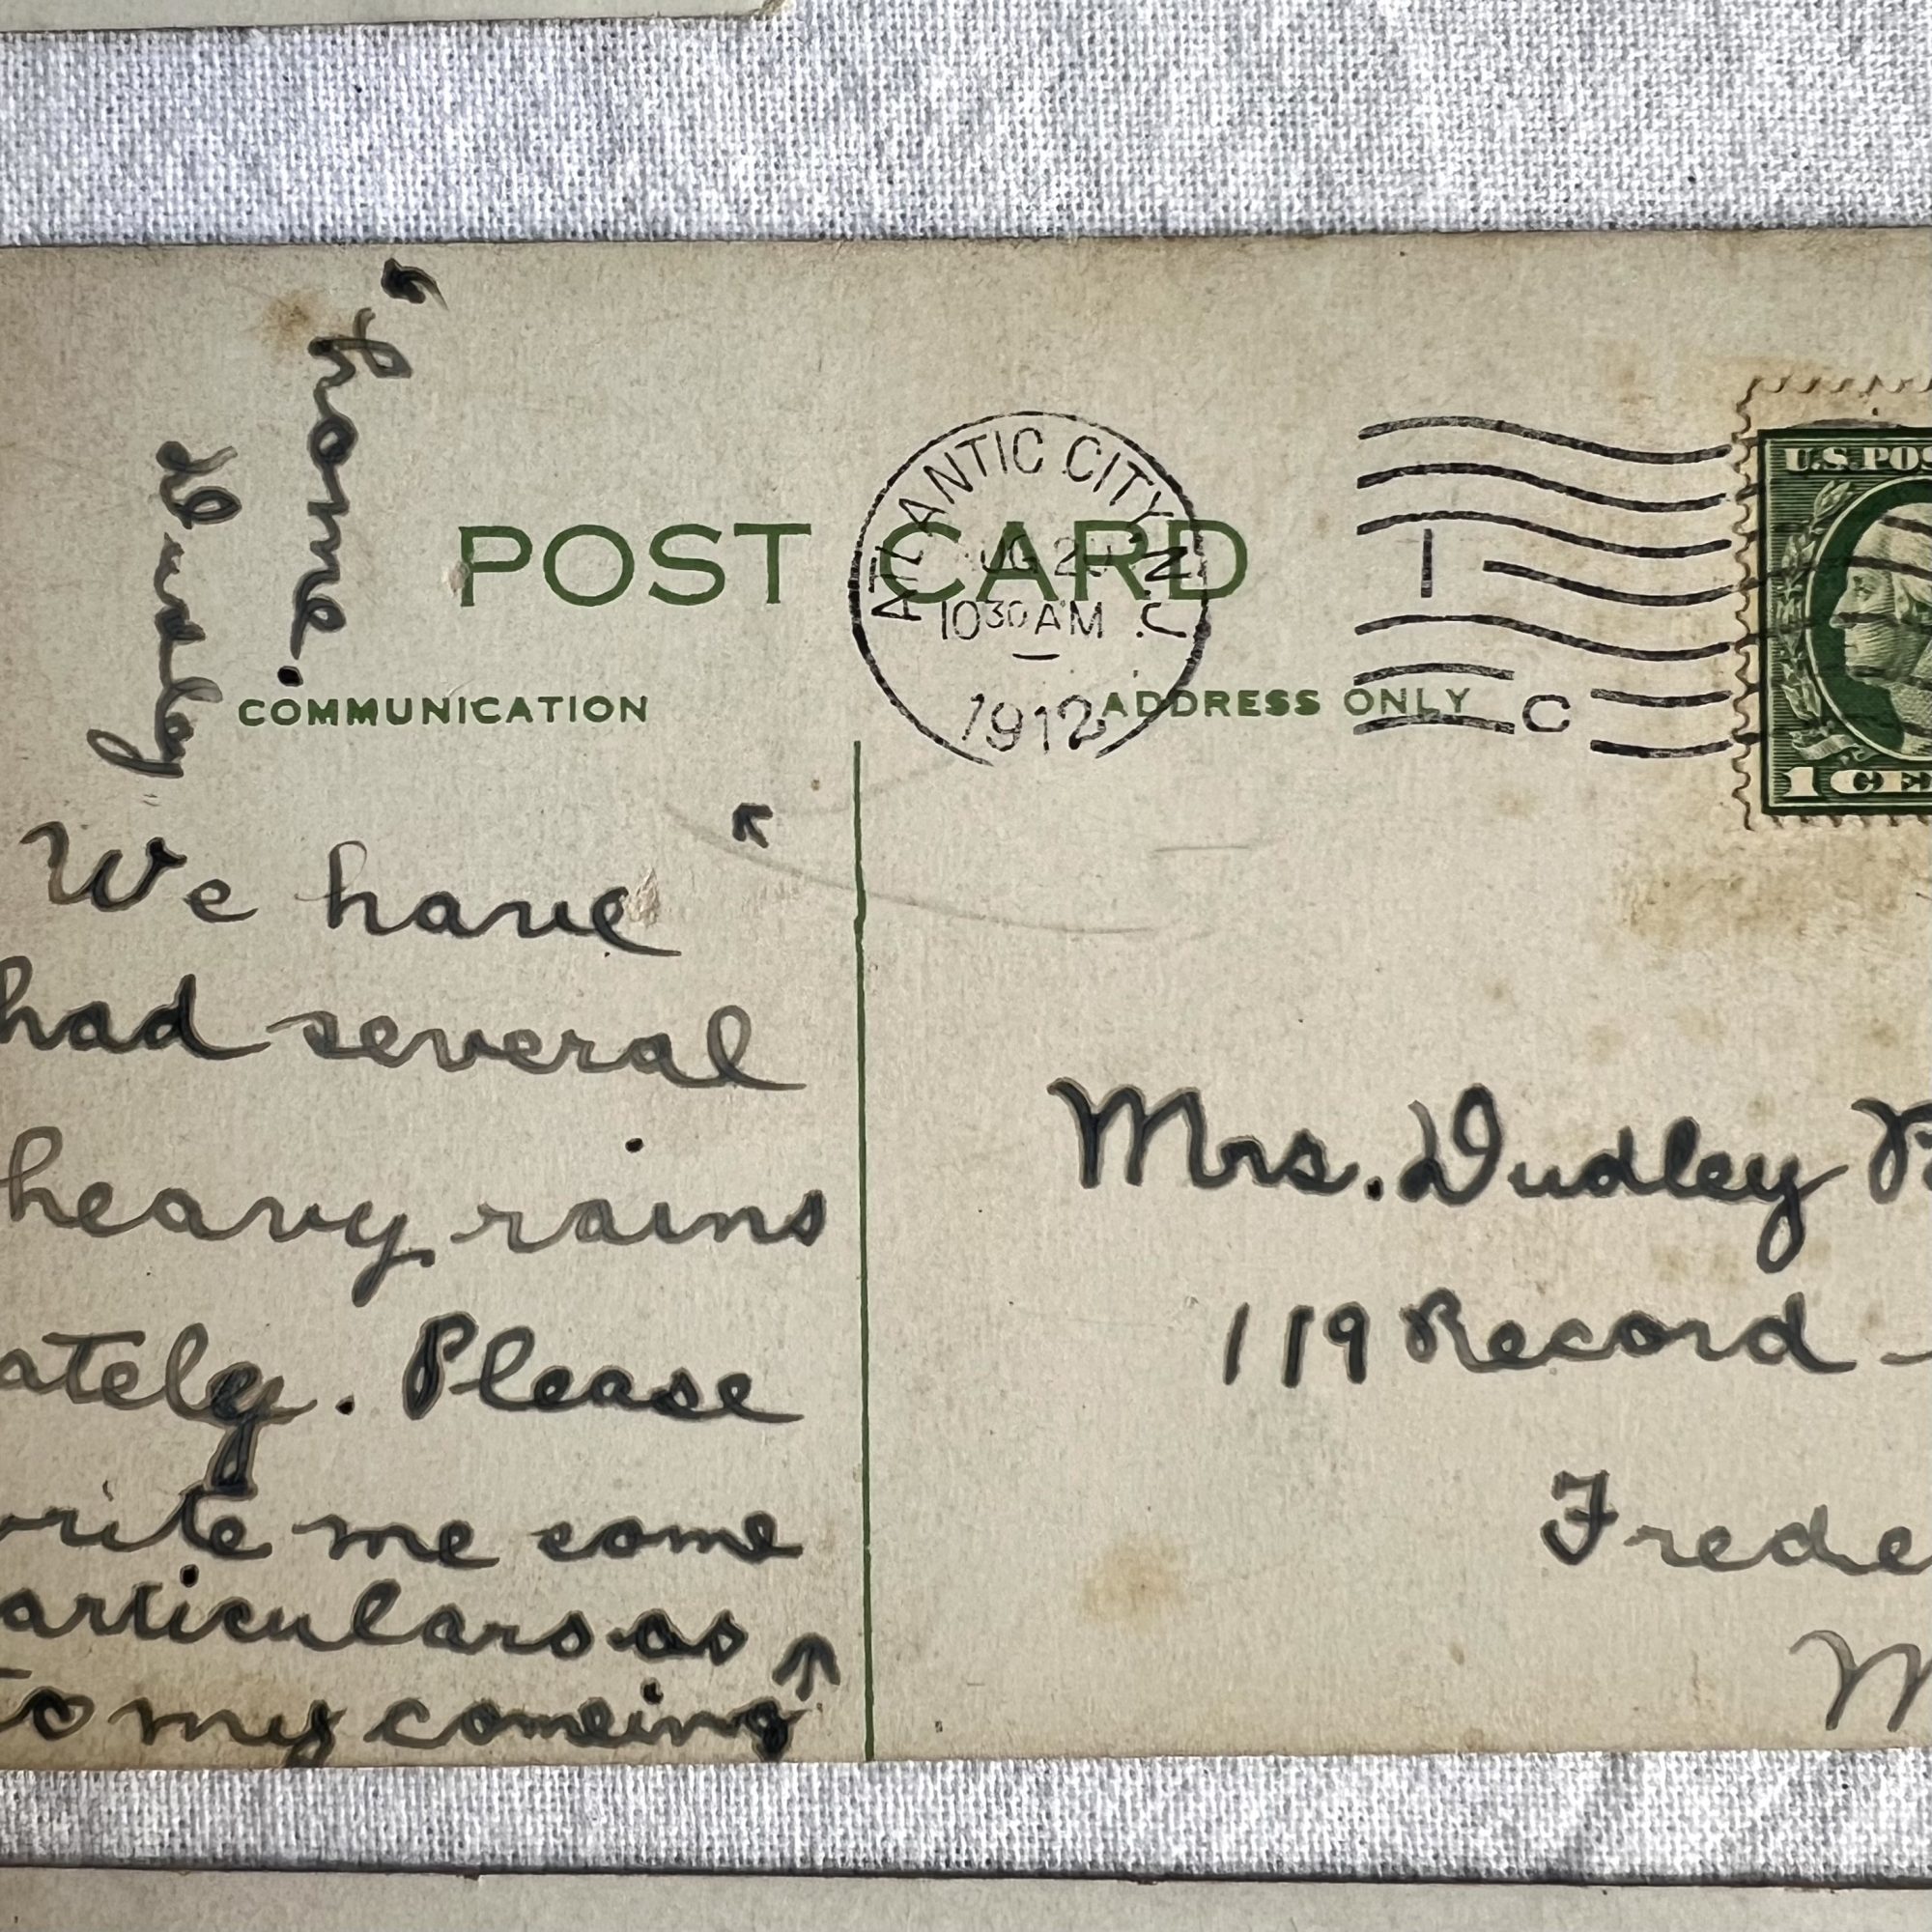 home.
Dudley
POST CARD
ATLANTIC CITY N.J.
10 30 AM
1912
COMMUNICATION
ADDRESS ONLY
1
C
U.S. POS
1 CE
We have
had several
heavy rains
ately. Please
write me some
articulars as
to my comeing
Mrs. Dudley
119 Record
Frede
M